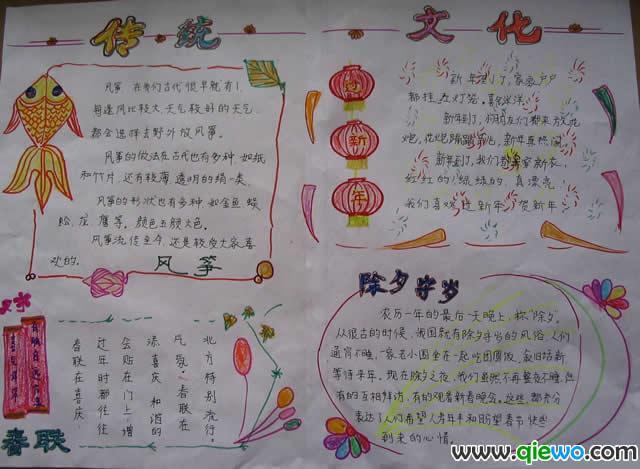 传统
文化
风筝,在我们古代很早就有了,
每逢风比较大,天气较好的天气
都会选择去野外放风筝。
风筝的做法在古代也有多种,如纸
和竹片,还有较薄透明的绢一类.
风筝的形状也有多种,如金鱼 蜈
蚣、龙、鹰等。颜色五颜六色。
风筝流传至今,还是较受大家喜
欢的。
风筝
新
年
新年到了,家家户户
都挂大灯笼。喜气洋洋
新年到了,们都来放花
炮,花炮飞,新年真热闹
新年到了,我们穿新衣,
红红的,绿绿的,真漂亮,
我们喜欢过新年,贺新年
北方特别流行。
风气。春联在
添喜庆 和谐的
会贴在门上增
过年时都往往
春联在喜庆
春联
除夕守岁
农历一年的最后一天晚上,称"除夕"。
从很古的时候,我国就有除夕守岁的风俗,人们
通宵不睡,一家老小围在一起吃团圆饭,叙旧话新
等待来年。现在除夕之夜,我们虽然不再整夜不睡,但
有的互相拜访,有的观看新春晚会。这些,都充分
表达了人们希望人寿年丰和盼望春节快些
到来的心情。
www.qiewo.com